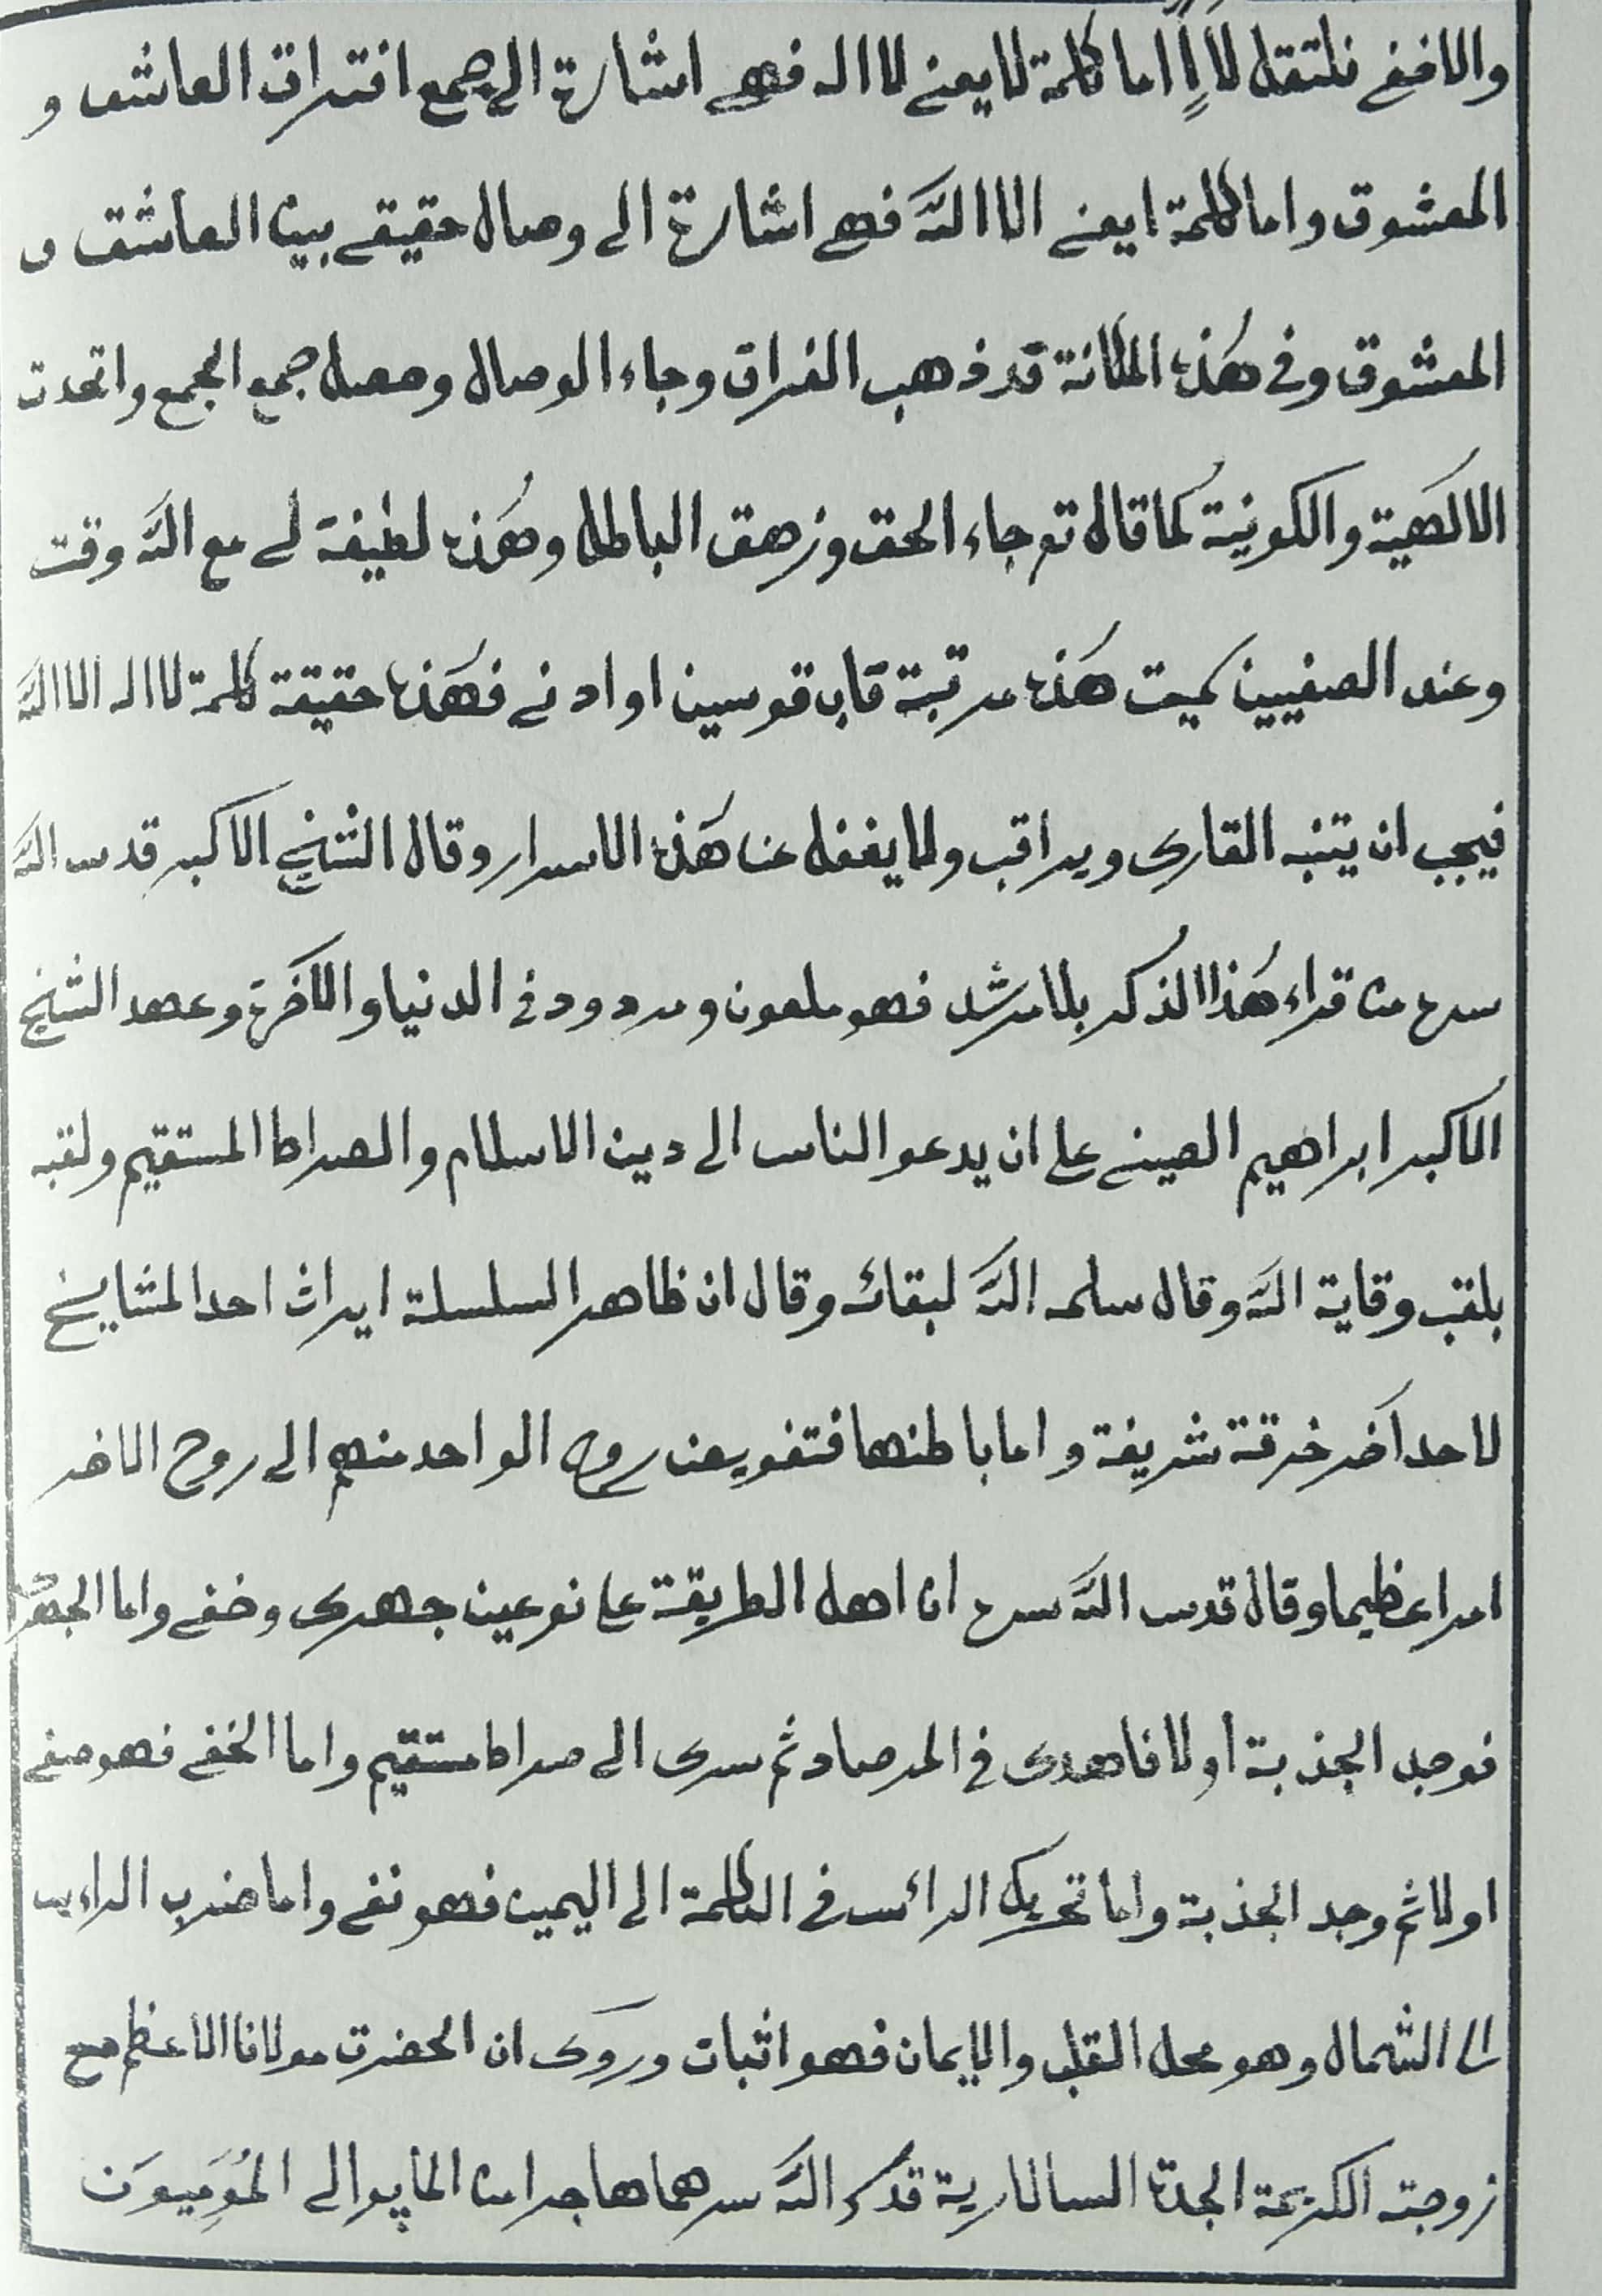 والاخفى فلتقل لاَ اً اِما كلمة لا يعنى لا اله فهى اشارة الى جمع افتراق العاشق و
المعشوق واما كلمة ا يعنى الا اللّٰه فهى اشارة الى وصال حقيقى بين العاشق و
المعشوق وفى هٰذه المكانة قد ذهب الفراق وجاء الوصال وحصل جمع الجمع واتحدت
الالٰهية والكونية كما قال تع جاء الحق وزهق الباطل وهٰذه لطيفة لى مع اللّٰه وقت
وعند الصفيين كميت هٰذه مرتبة قاب قوسين او ادنى فهٰذه حقيقة كلمة لا اله الا اللّٰه
فيجب ان يتنبه القارى ويراقب ولا يغفل عن هٰذه الاسرار وقال الشيخ الاكبر قدس اللّٰه
سره من قراء هٰذا الذكر بلا مرشد فهو ملعون ومردود فى الدنيا والآخرة وعهد الشيخ
الاكبر ابراهيم الصينى على ان يدعو الناس الى دين الاسلام والصراط المستقيم ولقبه
بلقب وقاية اللّٰه وقال سلمه اللّٰه لبقائه وقال ان ظاهر السلسلة ايراث احد المشايخ
لاحد آخر خرقة شريفة واما باطنها فتفويض روح الواحد منهم الى روح الاخر
امرا عظيما وقال قدس اللّٰه سره ان اهل الطريقة على نوعين جهرى وخفى واما الجهرى
فوجد الجذبة اولا فاهدى فى المرصاد ثم سرى الى صراط مستقيم واما الخفى فهو صفى
اولا ثم وجد الجذبة واما تحريك الرائس فى الكلمة الى اليمين فهو نفى واما ضرب الراءس
الى الشمال وهو محل القلب والايمان فهو اثبات وروى ان الحضرت مولانا الاعظم مع
زوجته الكريمة الجدة السالارية قدس اللّٰه سرهما هاجرا من الماپو الى المُوَمِيوَن